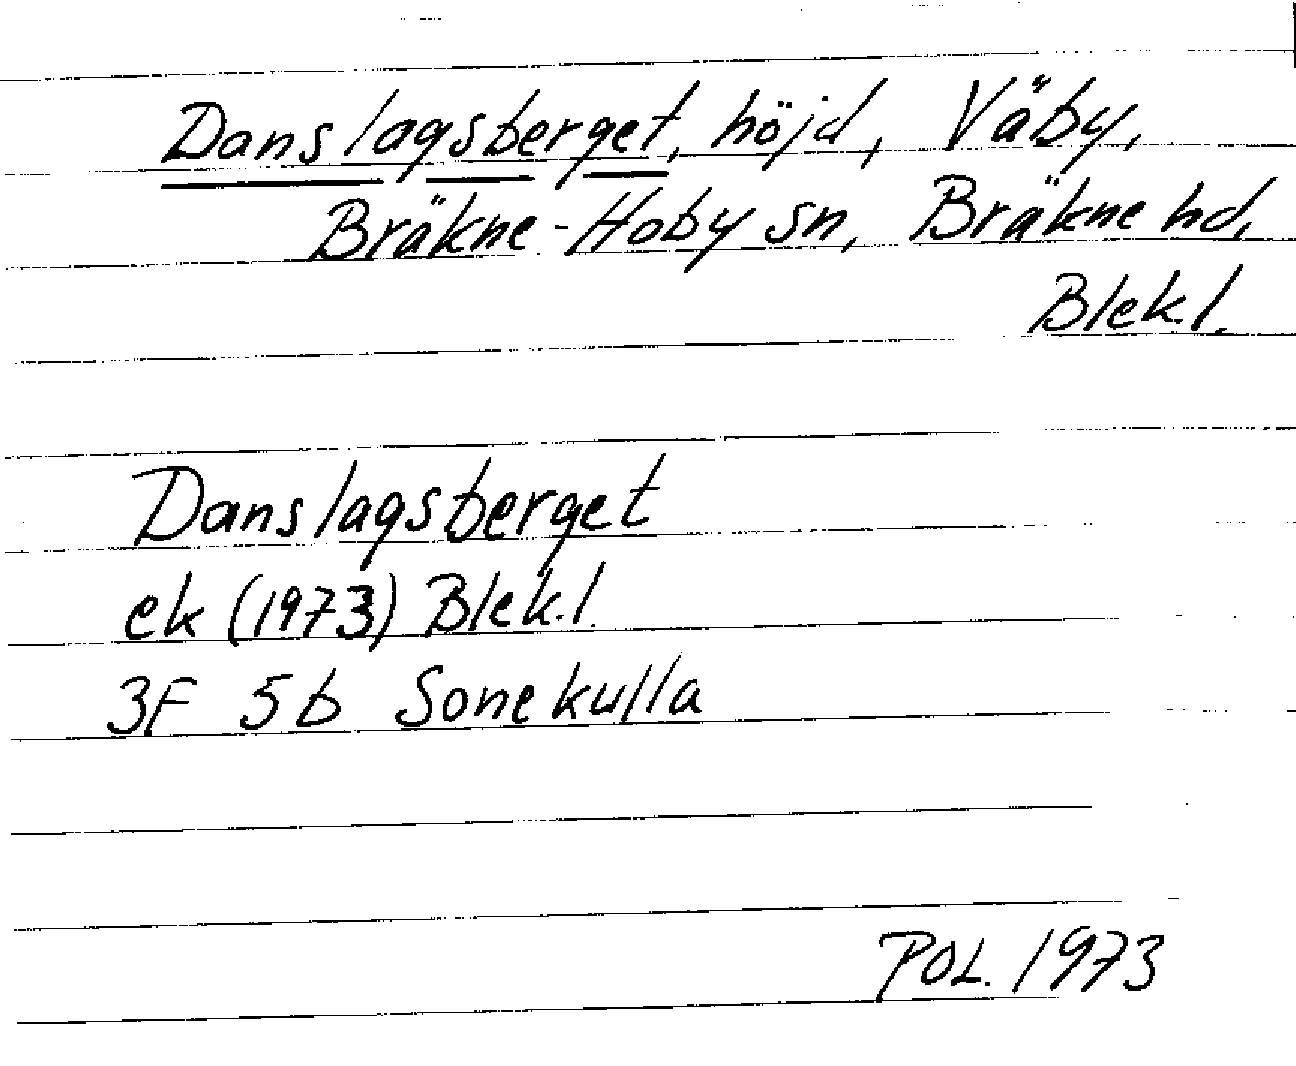 Danslagsberget, höjd, Väby,
Bräkne-Hoby sn, Bräkne hd,
Blek.l.
Danslagsberget
ek (1973) Blek.l.
3F 5b Sonekulla
POL. 1973